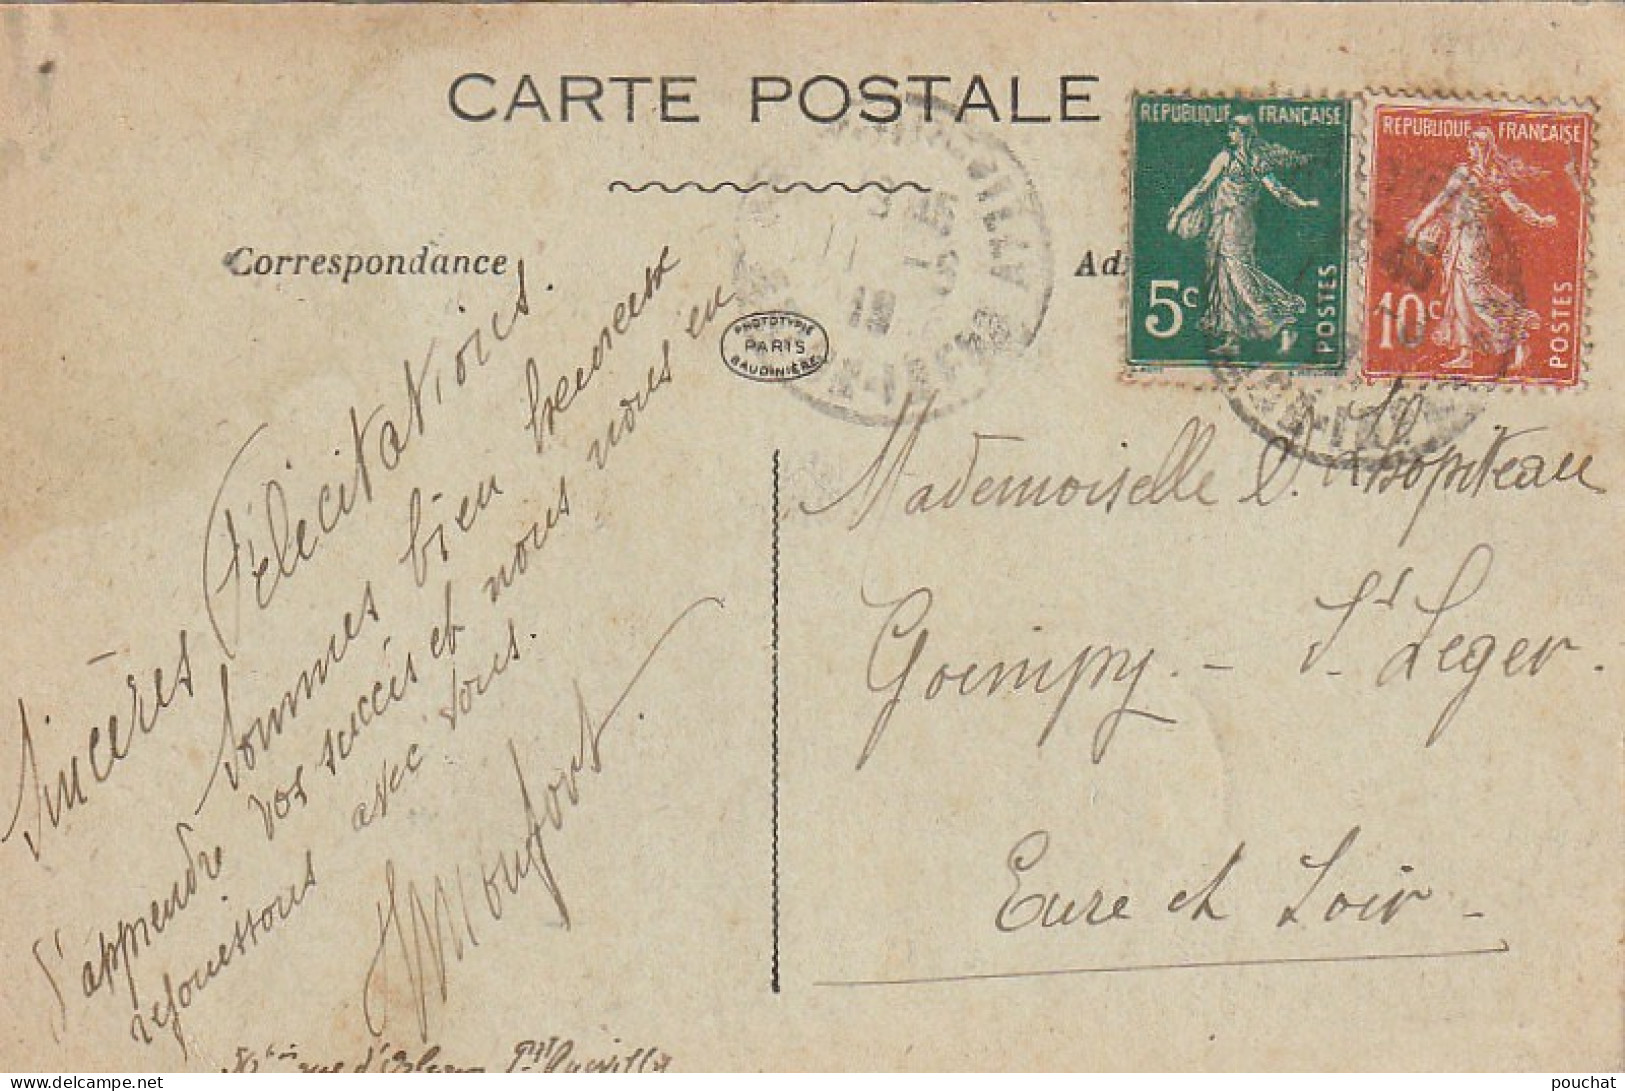 CARTE POSTALE
Correspondance
REPUBLIQUE FRANÇAISE
5c
POSTES
REPUBLIQUE FRANÇAISE
10c
POSTES
PHOTOTYPIE
PARIS
BAUDINIÈRE
Sincères Félicitations.
Sommes bien heureux
d'apprendre vos succès et nous nous en
réjouissons avec vous.
Monfort.
rue d'Orléans
Mademoiselle
Goimpy. - St. Leger.
Eure et Loir -
© delcampe.net
pouchat